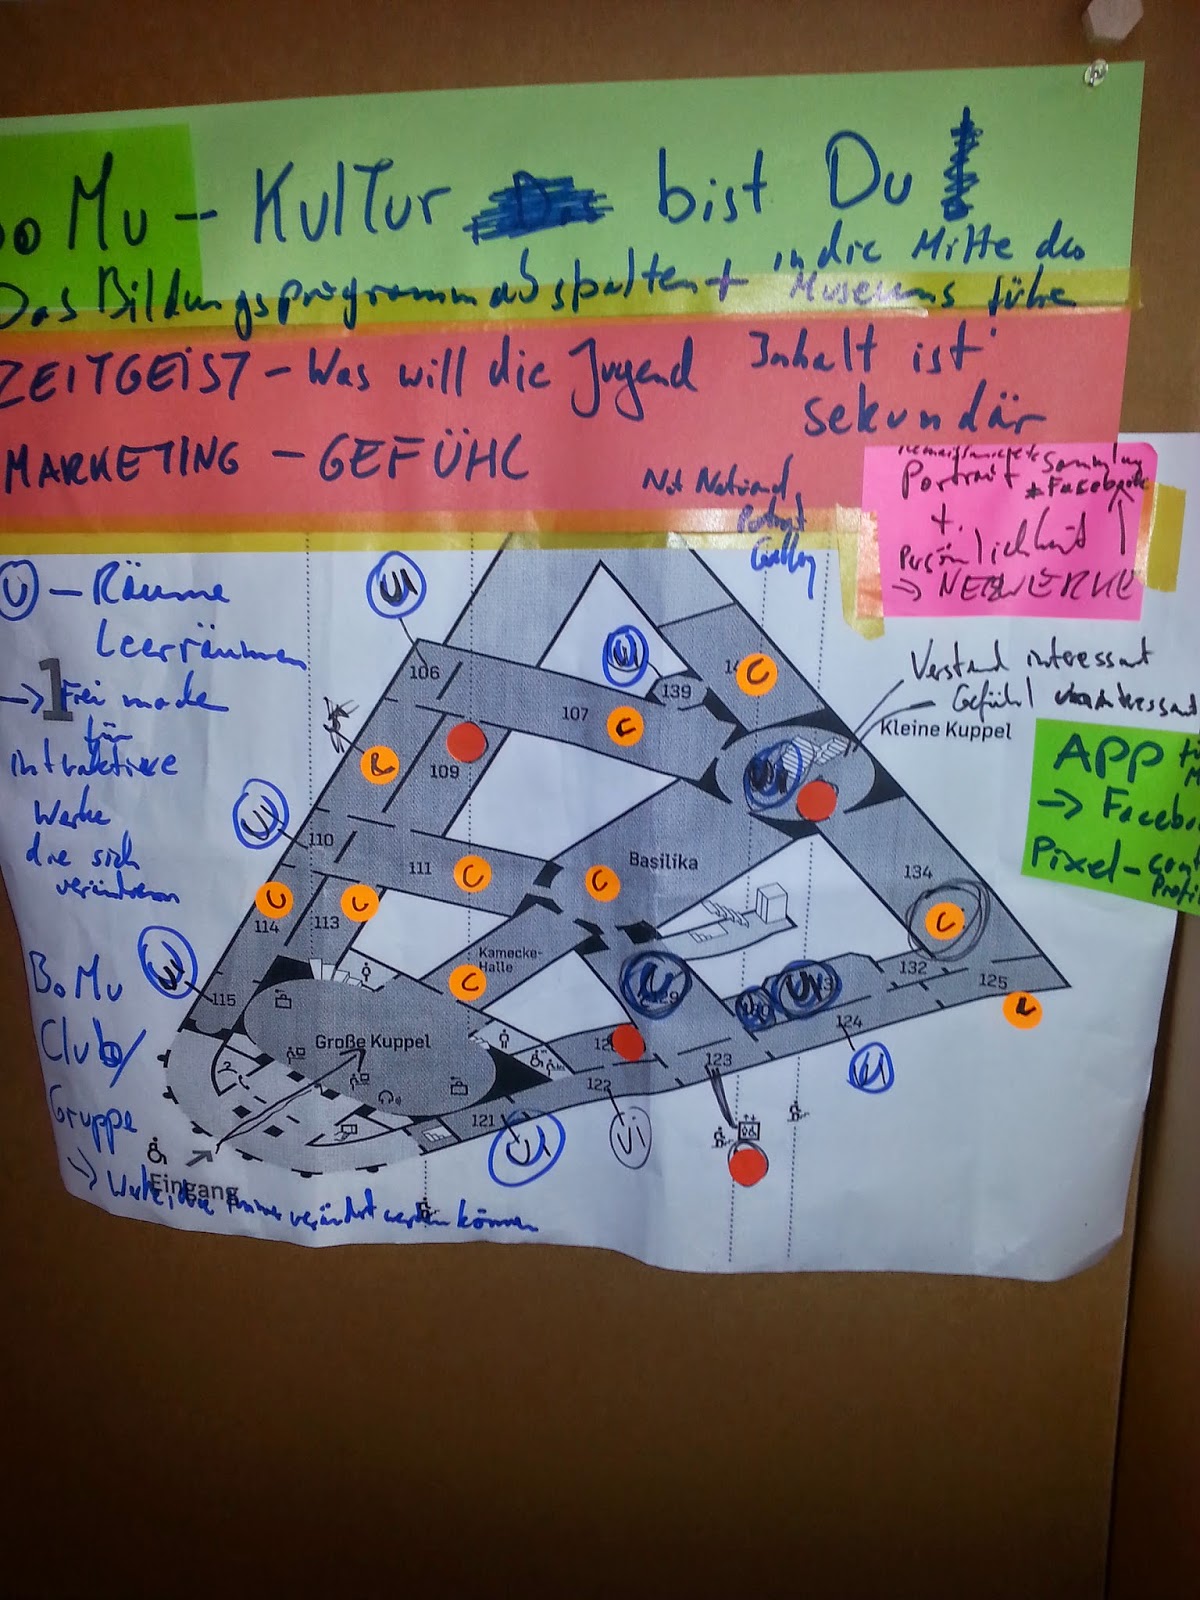 BoMu - Kultur bist Du!
Das Bildungsprogramm abspalten + in die Mitte des
Museums führen
ZEITGEIST - Was will die Jugend
Inhalt ist
sekundär
MARKETING - GEFÜHL
Not National
Portrait
Gallery
Sammlung
Portrait * Facebook
+
Persönlichkeit
→ NETZWERKE
U - Räume
Leerräumen
→ Frei machen
für
1
interaktive
Werke
die sich
verändern
Verstand interessant
Gefühl uninteressant
Kleine Kuppel
APP
→ Facebo
Pixel-
BoMu
Club/
Gruppe
→ Werke, die immer verändert werden können
Eingang
106
U
U
139
14
C
107
C
109
B
U
110
111
C
C
Basilika
134
C
114
U
113
U
Kamecke-
Halle
C
U
115
Große Kuppel
U
U
132
125
124
U
123
122
U
121
U